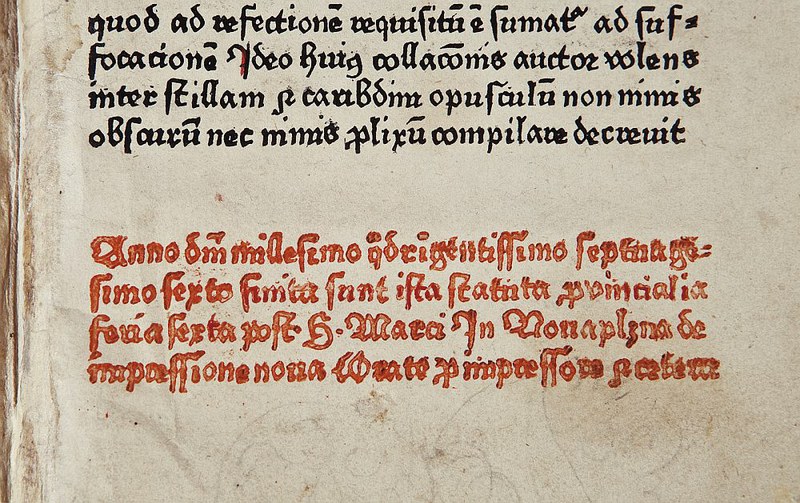 quod ad refectionē requisitū ē sumat᷑ ad suf-
focacionē Ideo huiꝰ collacōnis auctor volens
inter scillam ⁊ caribdim opusculū non nimis
obscurū nec nimis ꝓlixū compilare decreuit
Anno dm̄ millesimo q̄dringentissimo septuage-
simo sexto finita sunt ista statuta ꝓvincialia
feria sexta post S. Marci In Nouaplzna de
impressione noua Orate ꝓ impressore ⁊ cetera